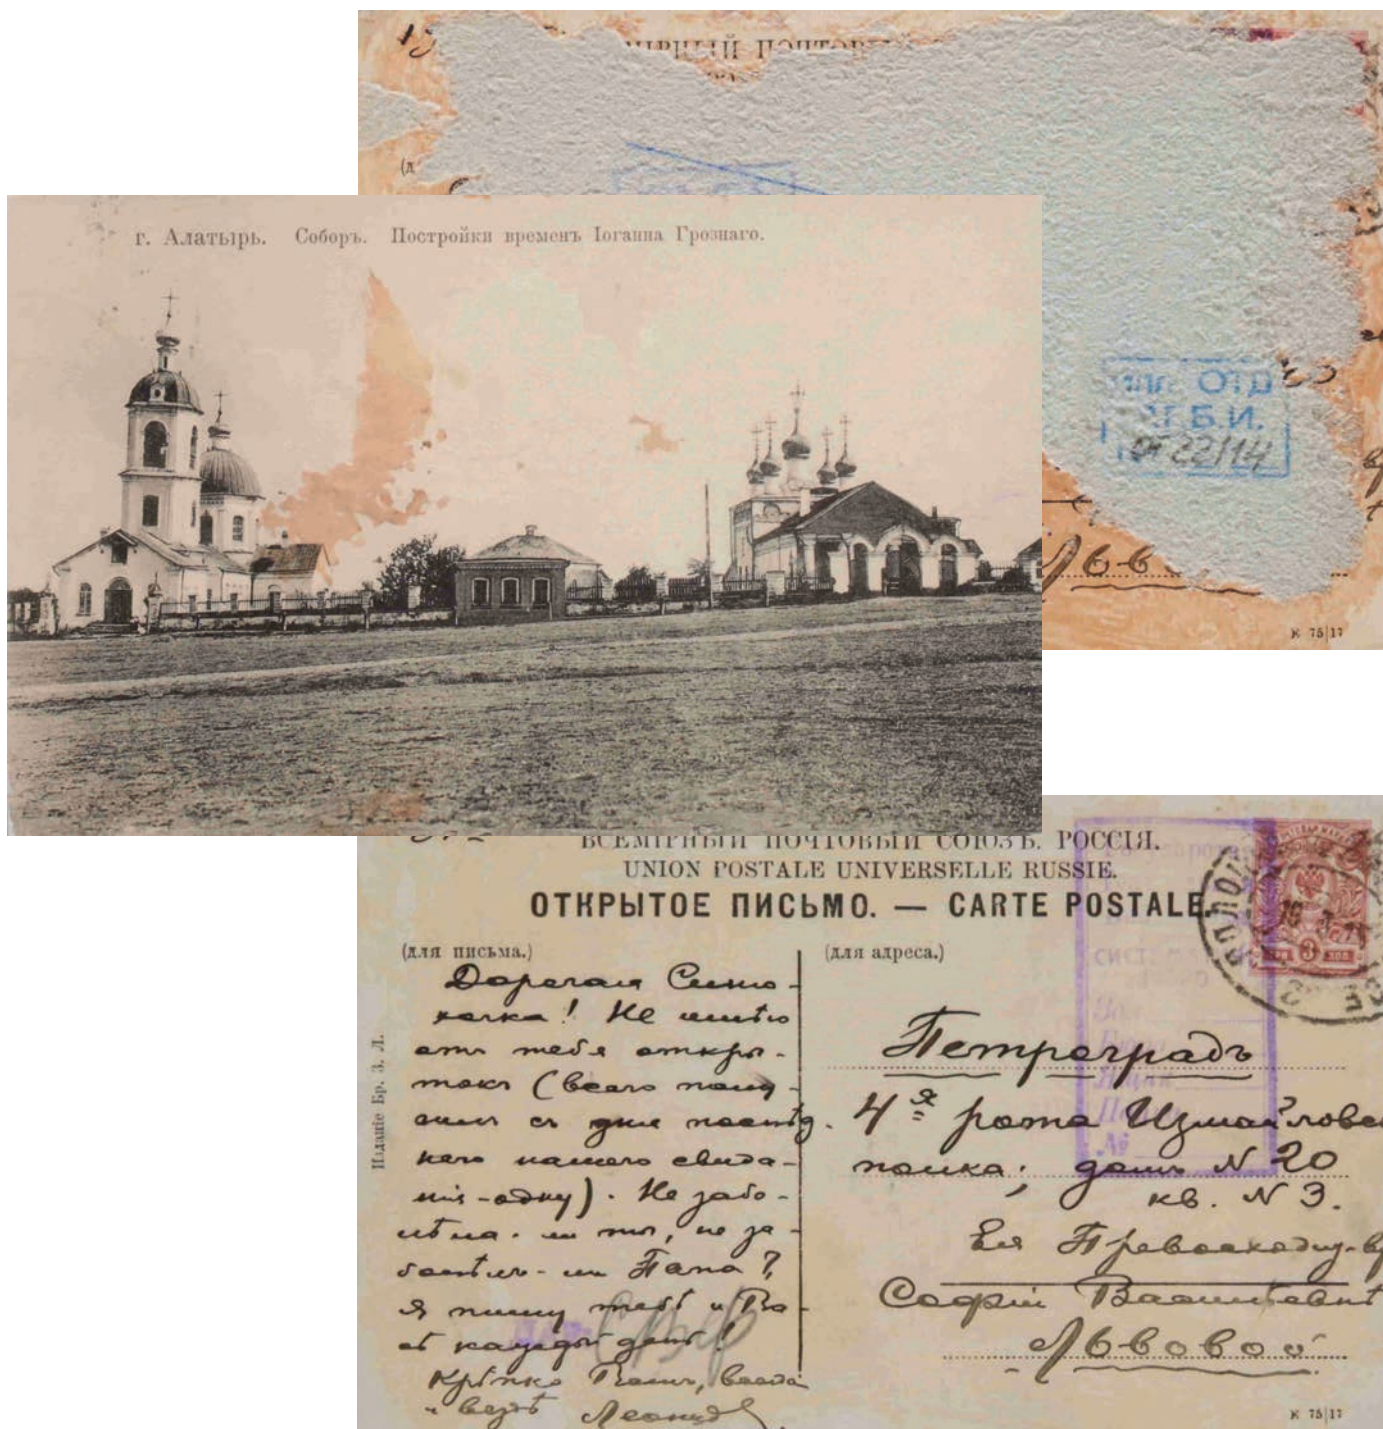 г. Алатырь. Соборъ. Постройки временъ Іоанна Грознаго.
ОТД
Б.И.
22/14
К 75|17
ВСЕМІРНЫЙ ПОЧТОВЫЙ СОЮЗЪ. РОССІЯ.
UNION POSTALE UNIVERSELLE RUSSIE.
ОТКРЫТОЕ ПИСЬМО. — CARTE POSTALE.
(для письма.)
Дорогая Симо-
чка! Не имѣю
отъ тебя откры-
токъ (всего полу-
чилъ со дня послѣд.
няго нашего свида-
нія-одну). Не забо-
лѣла-ли ты, не за-
болѣлъ-ли Папа?
Я пишу тебѣ и
каждый день!
Крѣпко Вашъ, всегда
и вездѣ Леонидъ
Изданіе Бр. З. Л.
(для адреса.)
Петроградъ
4я рота Измайловск
полка; домъ N 20
кв. N 3.
Ея Превосходит-ву
Софіи Васильевнѣ
Львовой
К 75|17